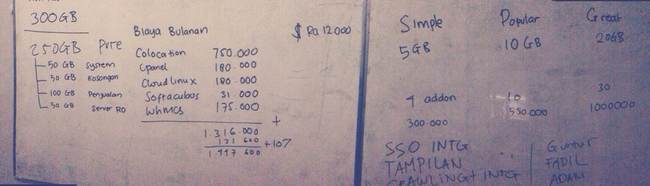 300GB
Biaya Bulanan
$ Rp 12000
250GB Pure
50 GB System
50 GB Kosongan
100 GB Penjualan
50 GB Server RO
Colocation 750.000
Cpanel 180.000
Cloudlinux 180.000
Softaculous 31.000
Whmcs 175.000
+
1.316.000
131 600 +10%
1.447 600
Simple Popular Great
5GB 10GB 20GB
4 addon 10 30
300.000 550.000 1000000
SSO INTG
TAMPILAN
CRAWLING+ INTG
Guntur
FADIL
ADAM